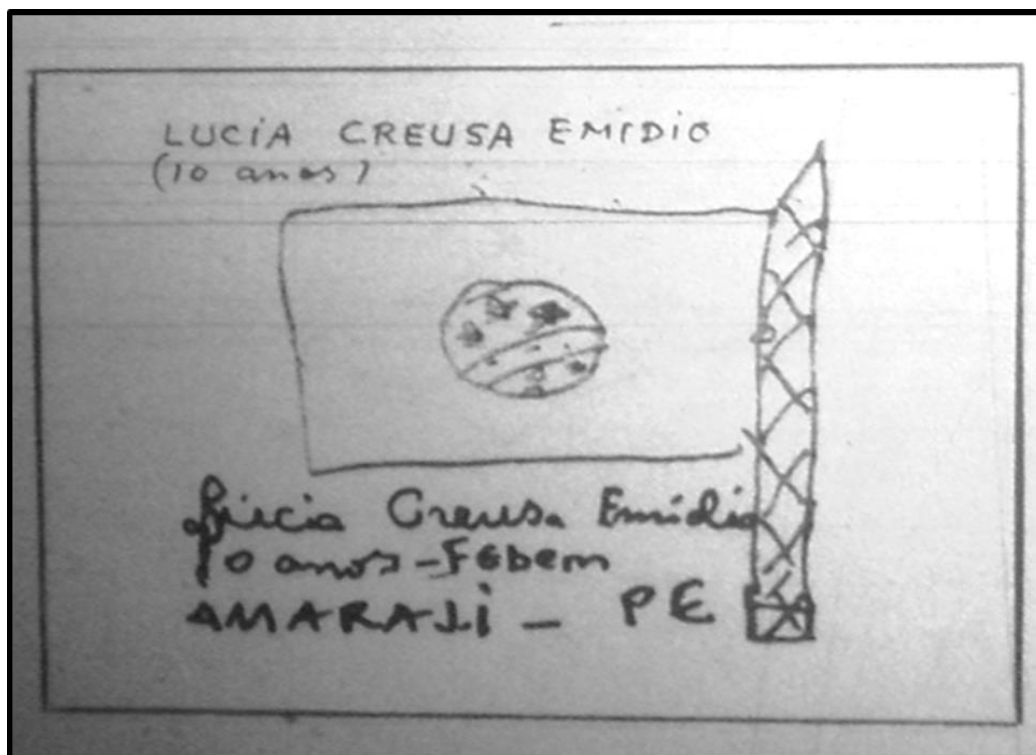 LUCIA CREUSA EMIDIO
(10 anos)
Lucia Creusa Emidio
10 anos - Febem
AMARAJI - PE